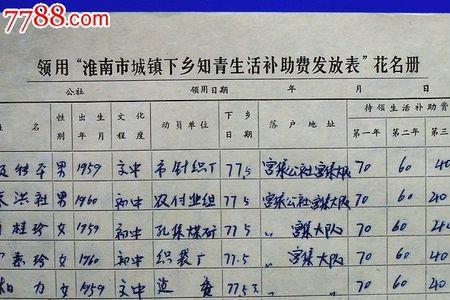 7788.com
领用“淮南市城镇下乡知青生活补助费发放表”花名册
公社 领用日期 年 月 日
名 性别 出生年月 文化程度 动员单位 下乡日期 落户地址 待领生活补助费
第一年 第二年 第三
男 1959 文中 市针织厂 77.5 宫集公社宫集大队 70 60 40
洪社 男 1960 初中 农付业组 77.5 宫集公社宫集大队 70 60 240
桂珍 女 1959 初中 孔集煤矿 77.5 宫集大队 70 60 240
素珍 女 1960 初中 织袋厂 77.5 宫集大队 70 60 240
力 女 1959 文中 77.5 70 60 240